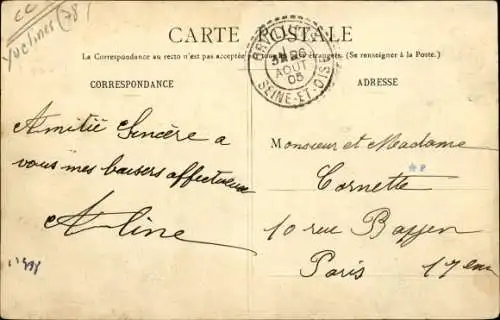 CC
Yvelines (78)
CARTE POSTALE
La Correspondance au recto n'est pas acceptée par tous les étrangers. (Se renseigner à la Poste.)
CORRESPONDANCE
ADRESSE
AOUT
05
SEINE-ET-OISE
Amitié Sincère a
vous mes baisers affectueux
Aline
Monsieur et Madame
Cornette
10 rue Bayen
Paris 17 em